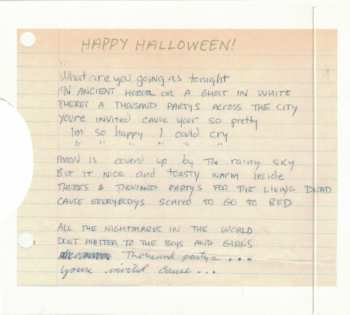 HAPPY HALLOWEEN!
What are you going as tonight
AN ANCIENT HORROR OR A GHOST IN WHITE
THERES A THOUSAND PARTYS ACROSS THE CITY
YOURE INVITED CAUSE YOUR SO PRETTY
Im so happy I could cry
" " " " " "
MOON IS COVERD UP by The rainy sky
But it nice and toasty warm inside
THERES A THOUSAND PARTYS FOR THE LIVING DEAD
CAUSE EVERYBODYS SCARED TO GO TO BED
ALL THE NIGHTMARES IN THE WORLD
DONT MATTER TO THE BOYS AND GIRLS
Thousand partys ...
Youre invited cause ...